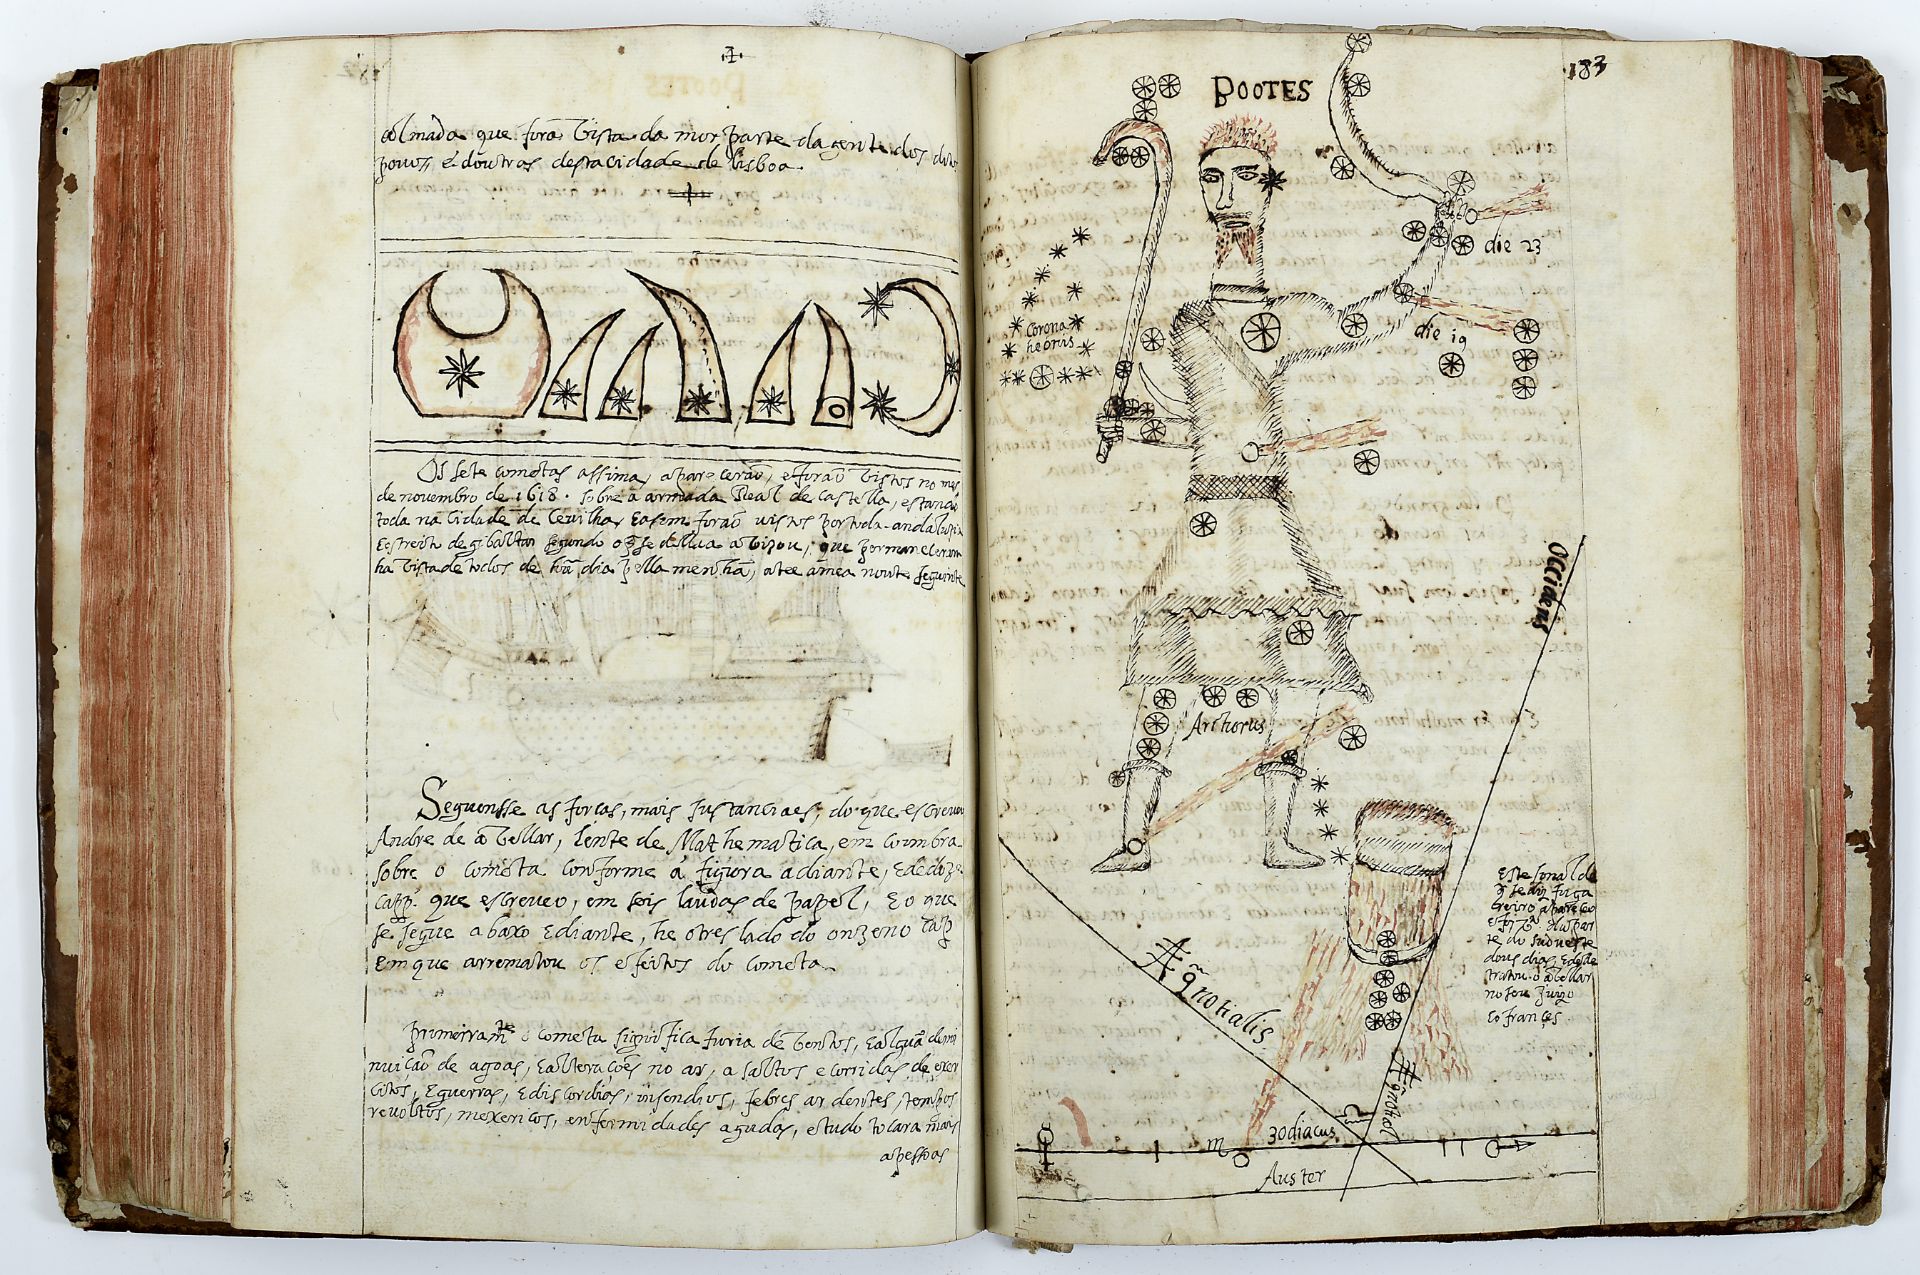 que forão vista da mor parte da gente dos ditos
povos, e doutras desta cidade de lisboa.
Os sete cometas assima, aparecerão, e forão vistos no mes
de novembro de 1618. sobre a armada Real de Castella, estando
toda na Cidade de Cevilha, easem forão vistos por toda andaluzia
Eestreito de gibaltar segundo o q̃ se de llua avizou, que permanecerão
ha vista de todos de hũ dia pella menhã, atee a mea noute seguinte
Seguensse as forças, mais sustanciaes, do que escreveu
Andre de avellar, lente de Mathematica, em coimbra
sobre o cometa conforme a figura adiante, Ededoze
capp. que escreveo, em seis laudas de papel, Eo que
se segue abaxo Ediante, he otreslado do onzeno cap
Em que arrematou os efeitos do cometa
primeiramte o cometa significa furia de ventos, Ealgũa demi
nuicão de agoas, Ealteracões no ar, asaltos e corridas de exer
citos, Eguerras, Ediscordias, insendios, febres ardentes, tempos
revoltos, mexericos, enfermidades agudas, estudo tocara mais
apessoas
183
BOOTES
die 23
Corona
die 19
Occidens
Arctorus
Este sinal de
q̃ se diz
apareceo
par
te do sudueste
dous dias,
tratou o avellar
no seu juizo
Eo frances.
Æqnotialis
Æqnotial
zodiacus
Auster